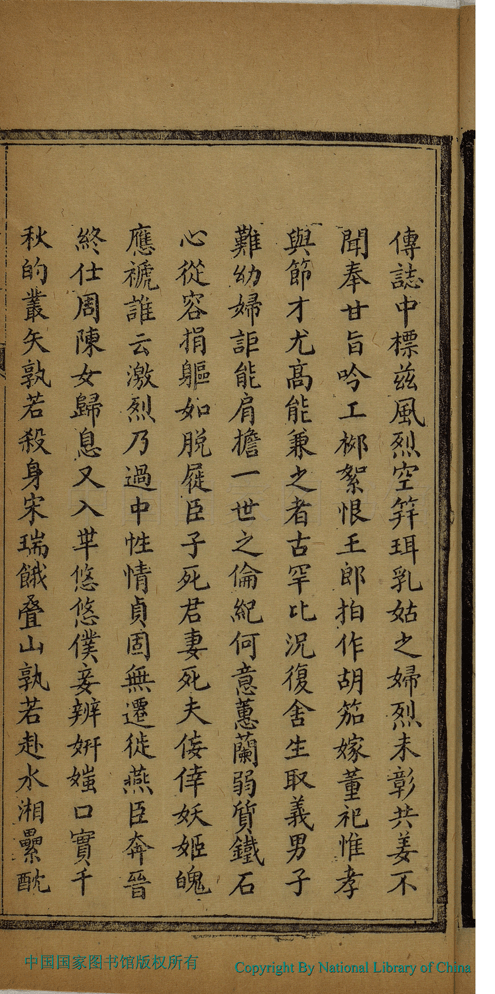 傳誌中標茲風烈空笄珥乳姑之婦烈未彰共姜不
聞奉甘旨吟工柳絮恨王郎拍作胡笳嫁董祀惟孝
與節才尤高能兼之者古罕比況復舍生取義男子
難幼婦詎能肩擔一世之倫紀何意蕙蘭弱質鐵石
心從容捐軀如脫屣臣子死君妻死夫倖倖妖姬魄
應褫誰云激烈乃過中性情貞固無遷徙燕臣奔晉
終仕周陳女歸息又入羋悠悠僕妾辨妍媸口實千
秋的叢矢孰若殺身宋瑞餓叠山孰若赴水湘纍酖
中国国家图书馆版权所有
Copyright By National Library of China